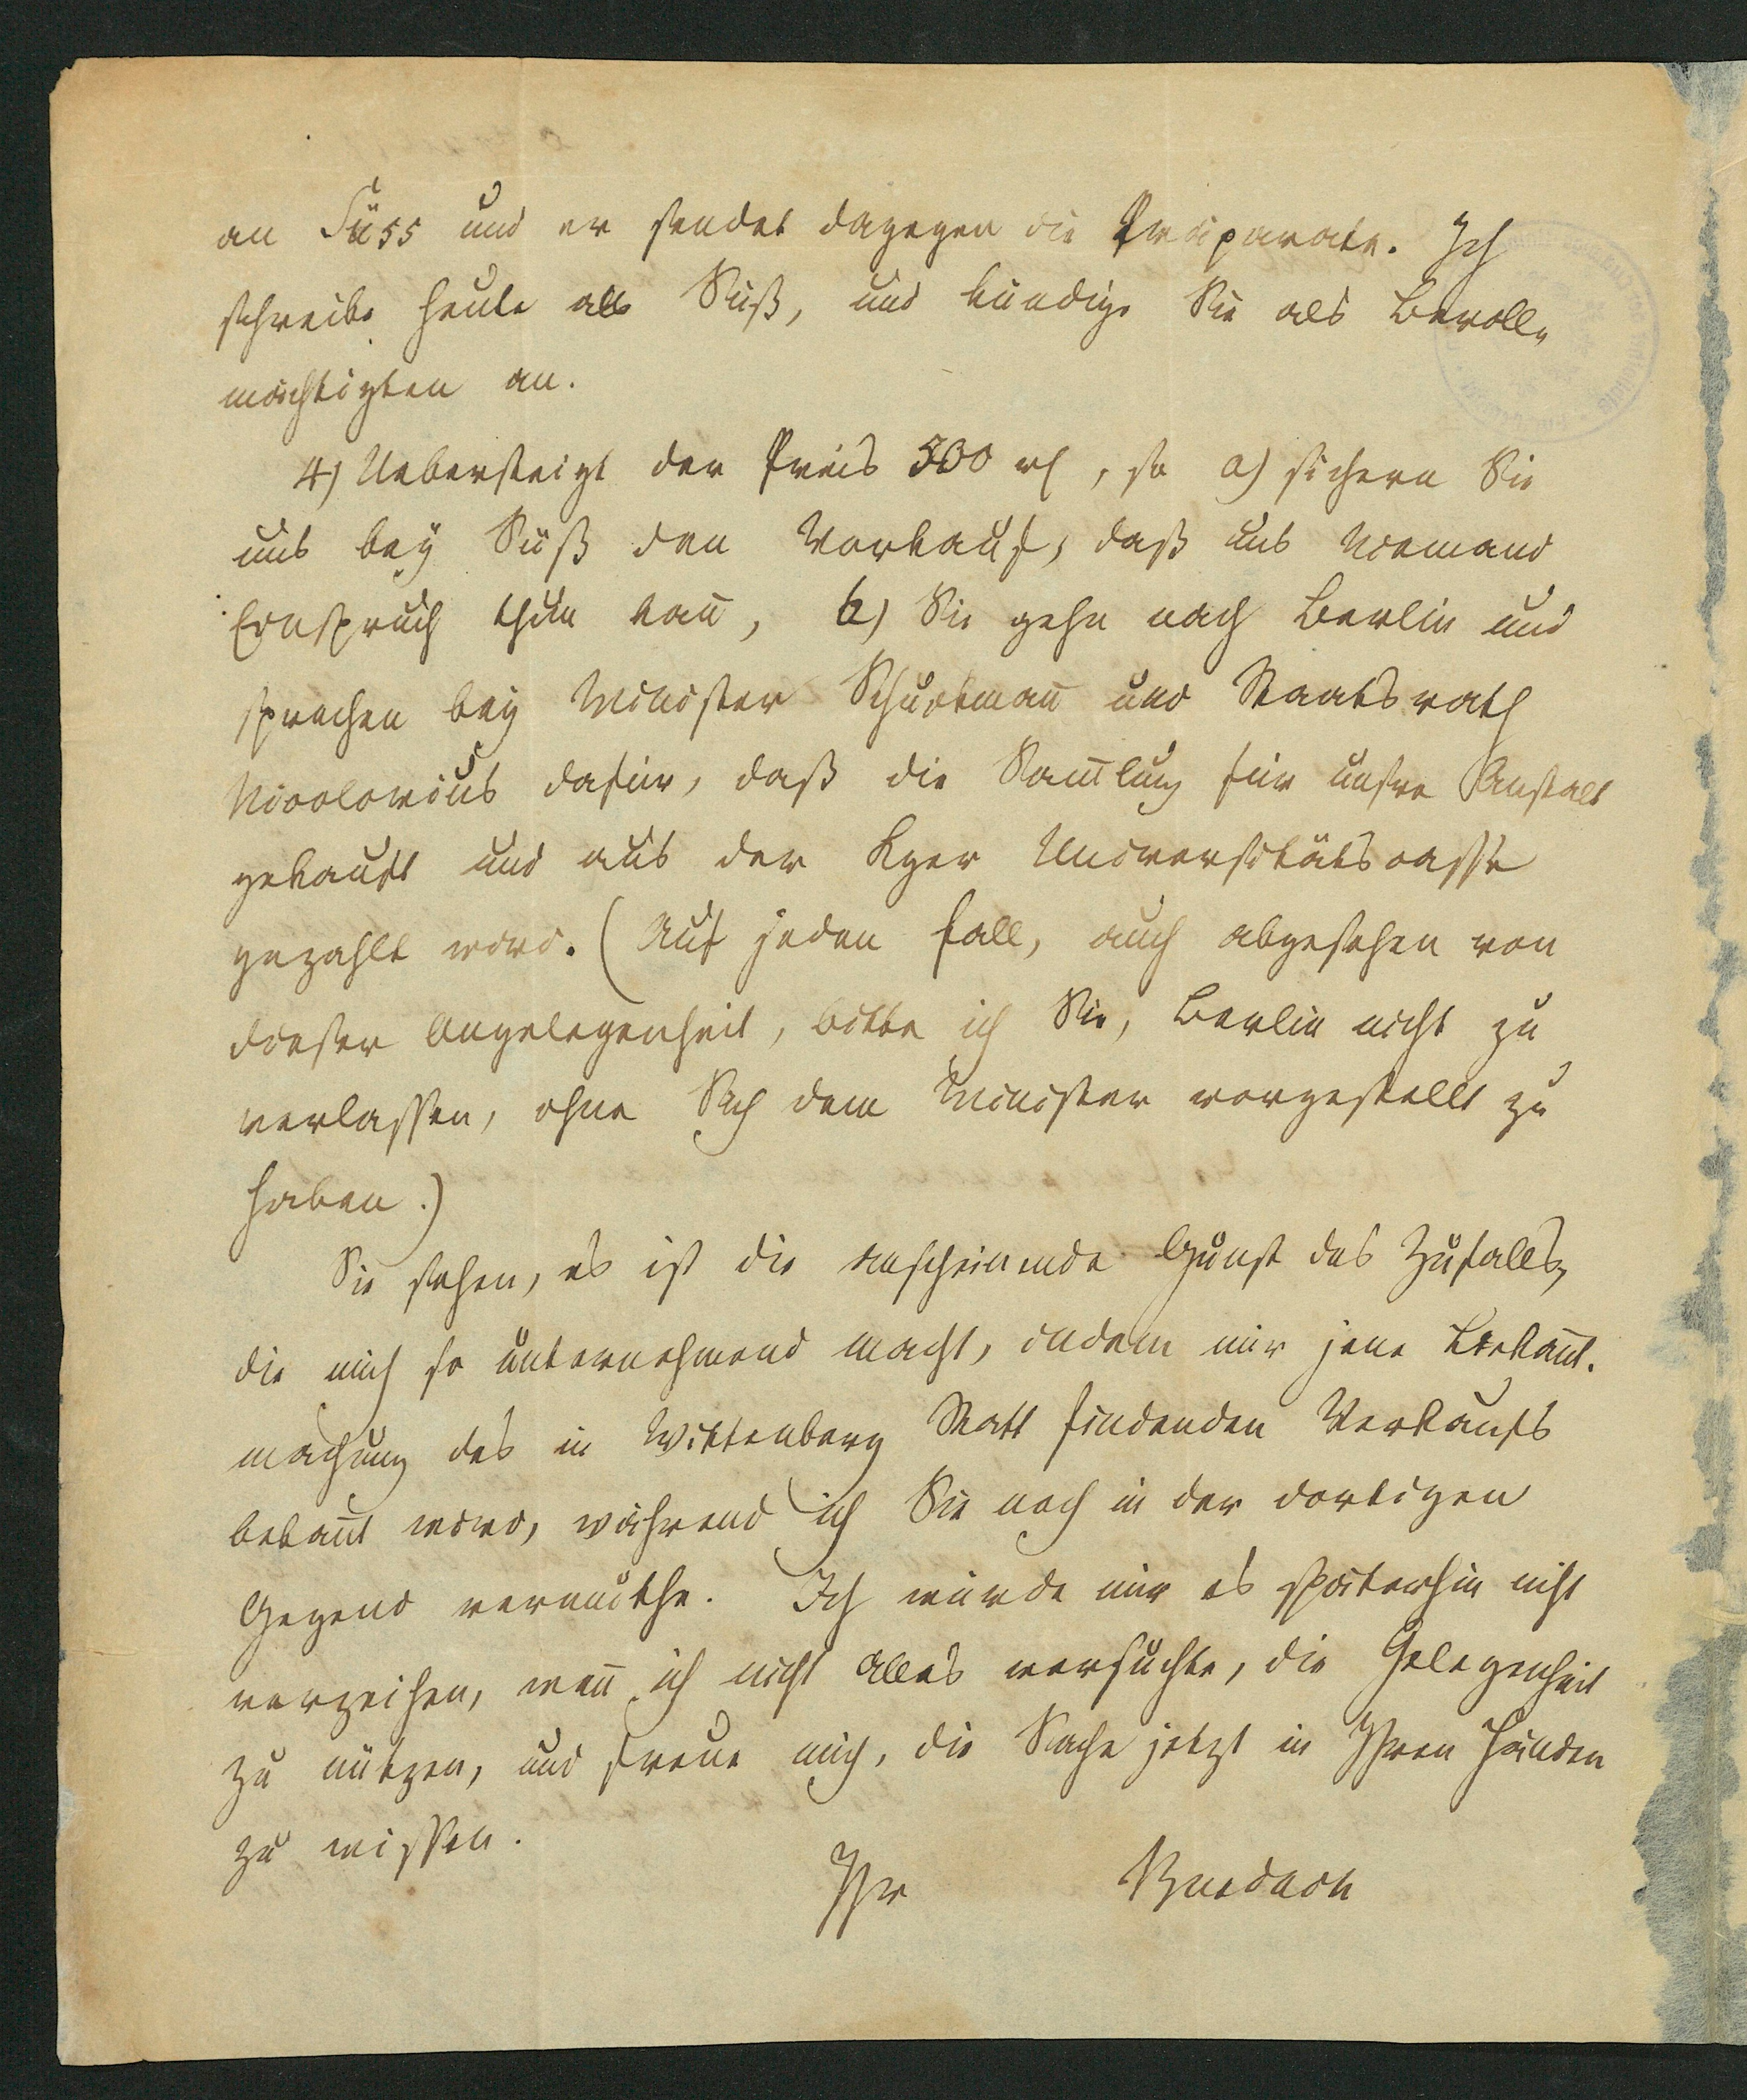 an Süss und er sendet dagegen die Präparate. Ich
schreibe heute an Süß, und kündige Sie als Bevoll„
mächtigten an.
4) Uebersteigt der Preis 500 rh, so a) sichern Sie
uns bey Süß den Vorkauf, daß uns Niemand
Einspruch thun kan̄, b) Sie gehn nach Berlin und
sprechen bey Minister Schuckman̄ und Staatsrath
Nicolovius dafür, daß die Sam̄lung für unsre Anstalt
gekauft und aus der Kger Universitätscasse
gezahlt wird. (Auf jeden Fall, auch abgesehen von
dieser Angelegenheit, bitte ich Sie, Berlin nicht zu
verlassen, ohne Sich dem Minister vorgestellt zu
haben.)
Sie sehen, es ist die anscheinende Gunst des Zufalls,
die mich so unternehmend macht, indem mir jene Bekan̄t.
machung des in Wittenberg Statt findenden Verkaufs
bekan̄t wird, während ich Sie noch in der dortigen
Gegend vermuthe. Ich würde mir es späterhin nicht
verzeihen, wen̄ ich nicht alles versuchte, die Gelegenheit
zu nützen, und freue mich, die Sache jetzt in Ihren Händen
zu wissen.
Ihr Burdach